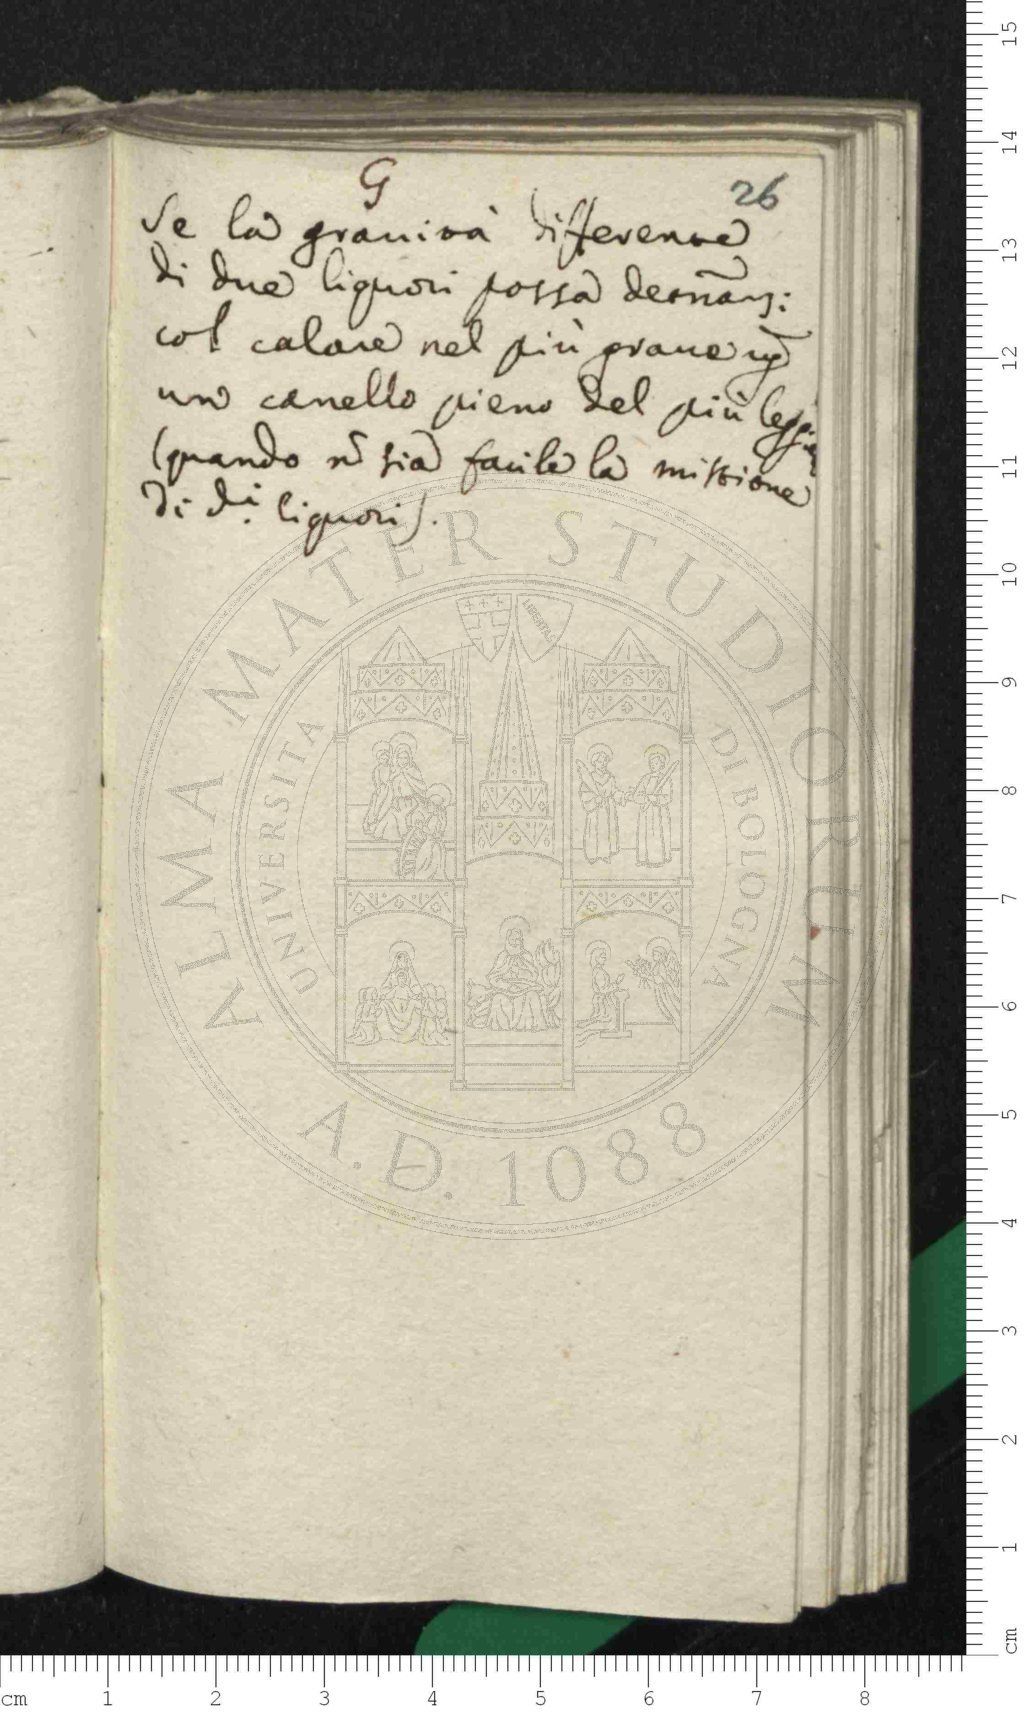 G
26
Se la grauità differente
di due liquori possa
col calare nel più graue
uno canello pieno del più
(quando nõ sia facile la mistione
di d.i liquori).
ALMA MATER STUDIORUM
UNIVERSITA DI BOLOGNA
LIBERTAS
A.D. 1088
15
14
13
12
11
10
9
8
7
6
5
4
3
2
1
cm
cm 1 2 3 4 5 6 7 8